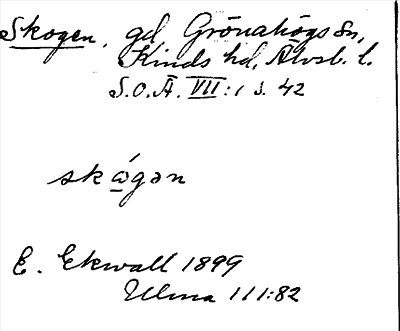 Skogen, gd Grönahögs sn,
Kinds hd, Älvsb. l.
S.O.Ä. VII:1 s. 42
skώgən
E. Ekwall 1899
Ulma 111:82